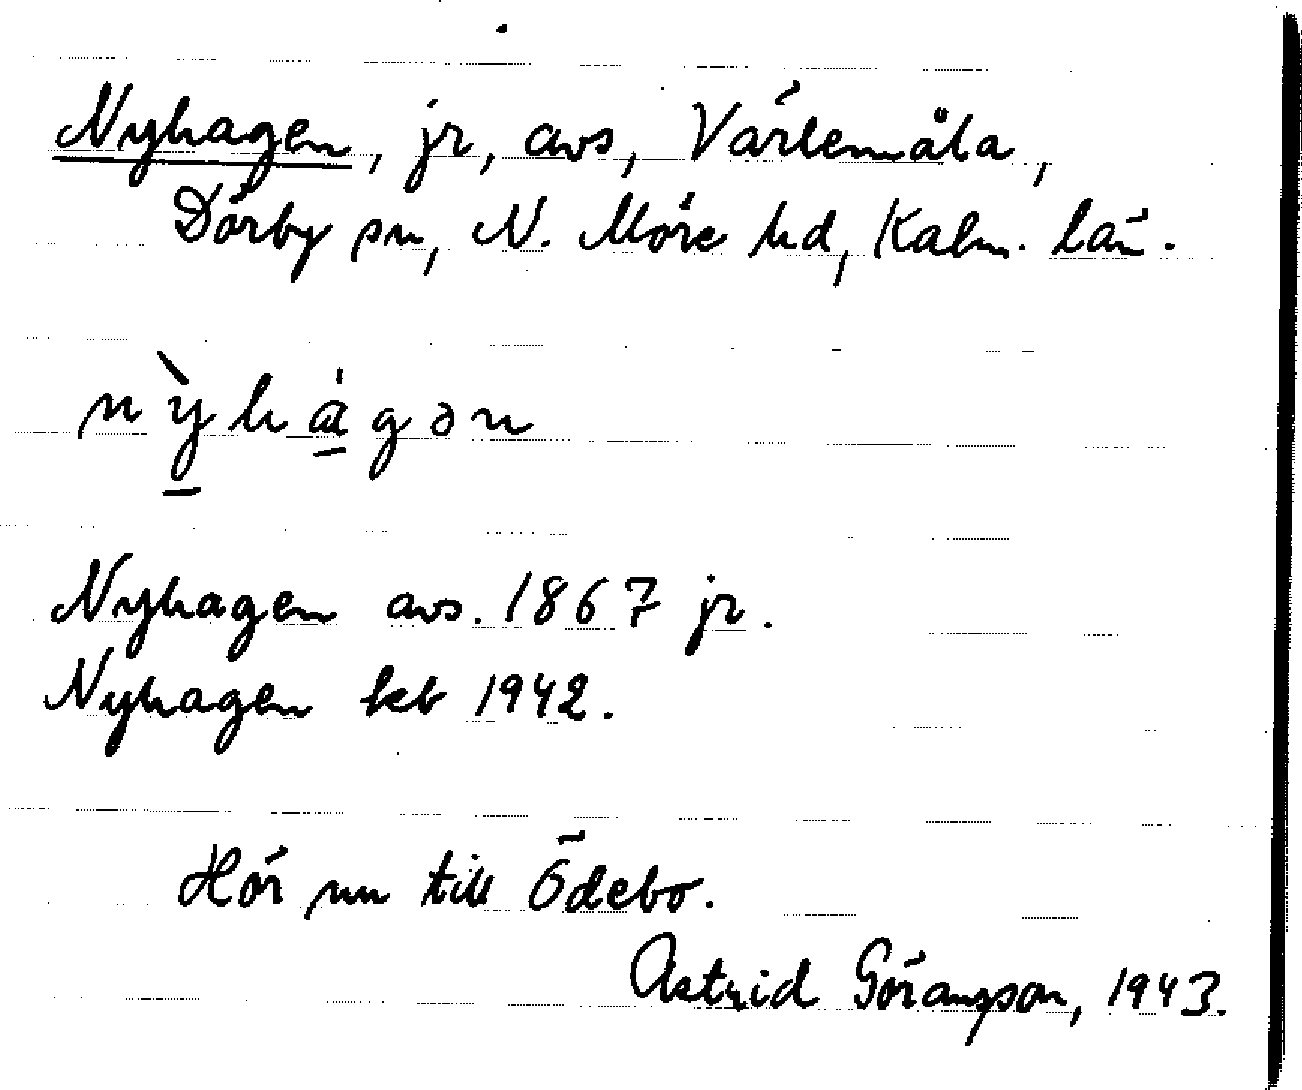 Nyhagen, jr, avs, Värlemåla,
Dörby sn, N. Möre hd, Kalm. län.
nỳ̠há̠gən
Nyhagen avs. 1867 jr.
Nyhagen kb 1942.
Hör nu till Ödebo.
Astrid Göranson, 1943.